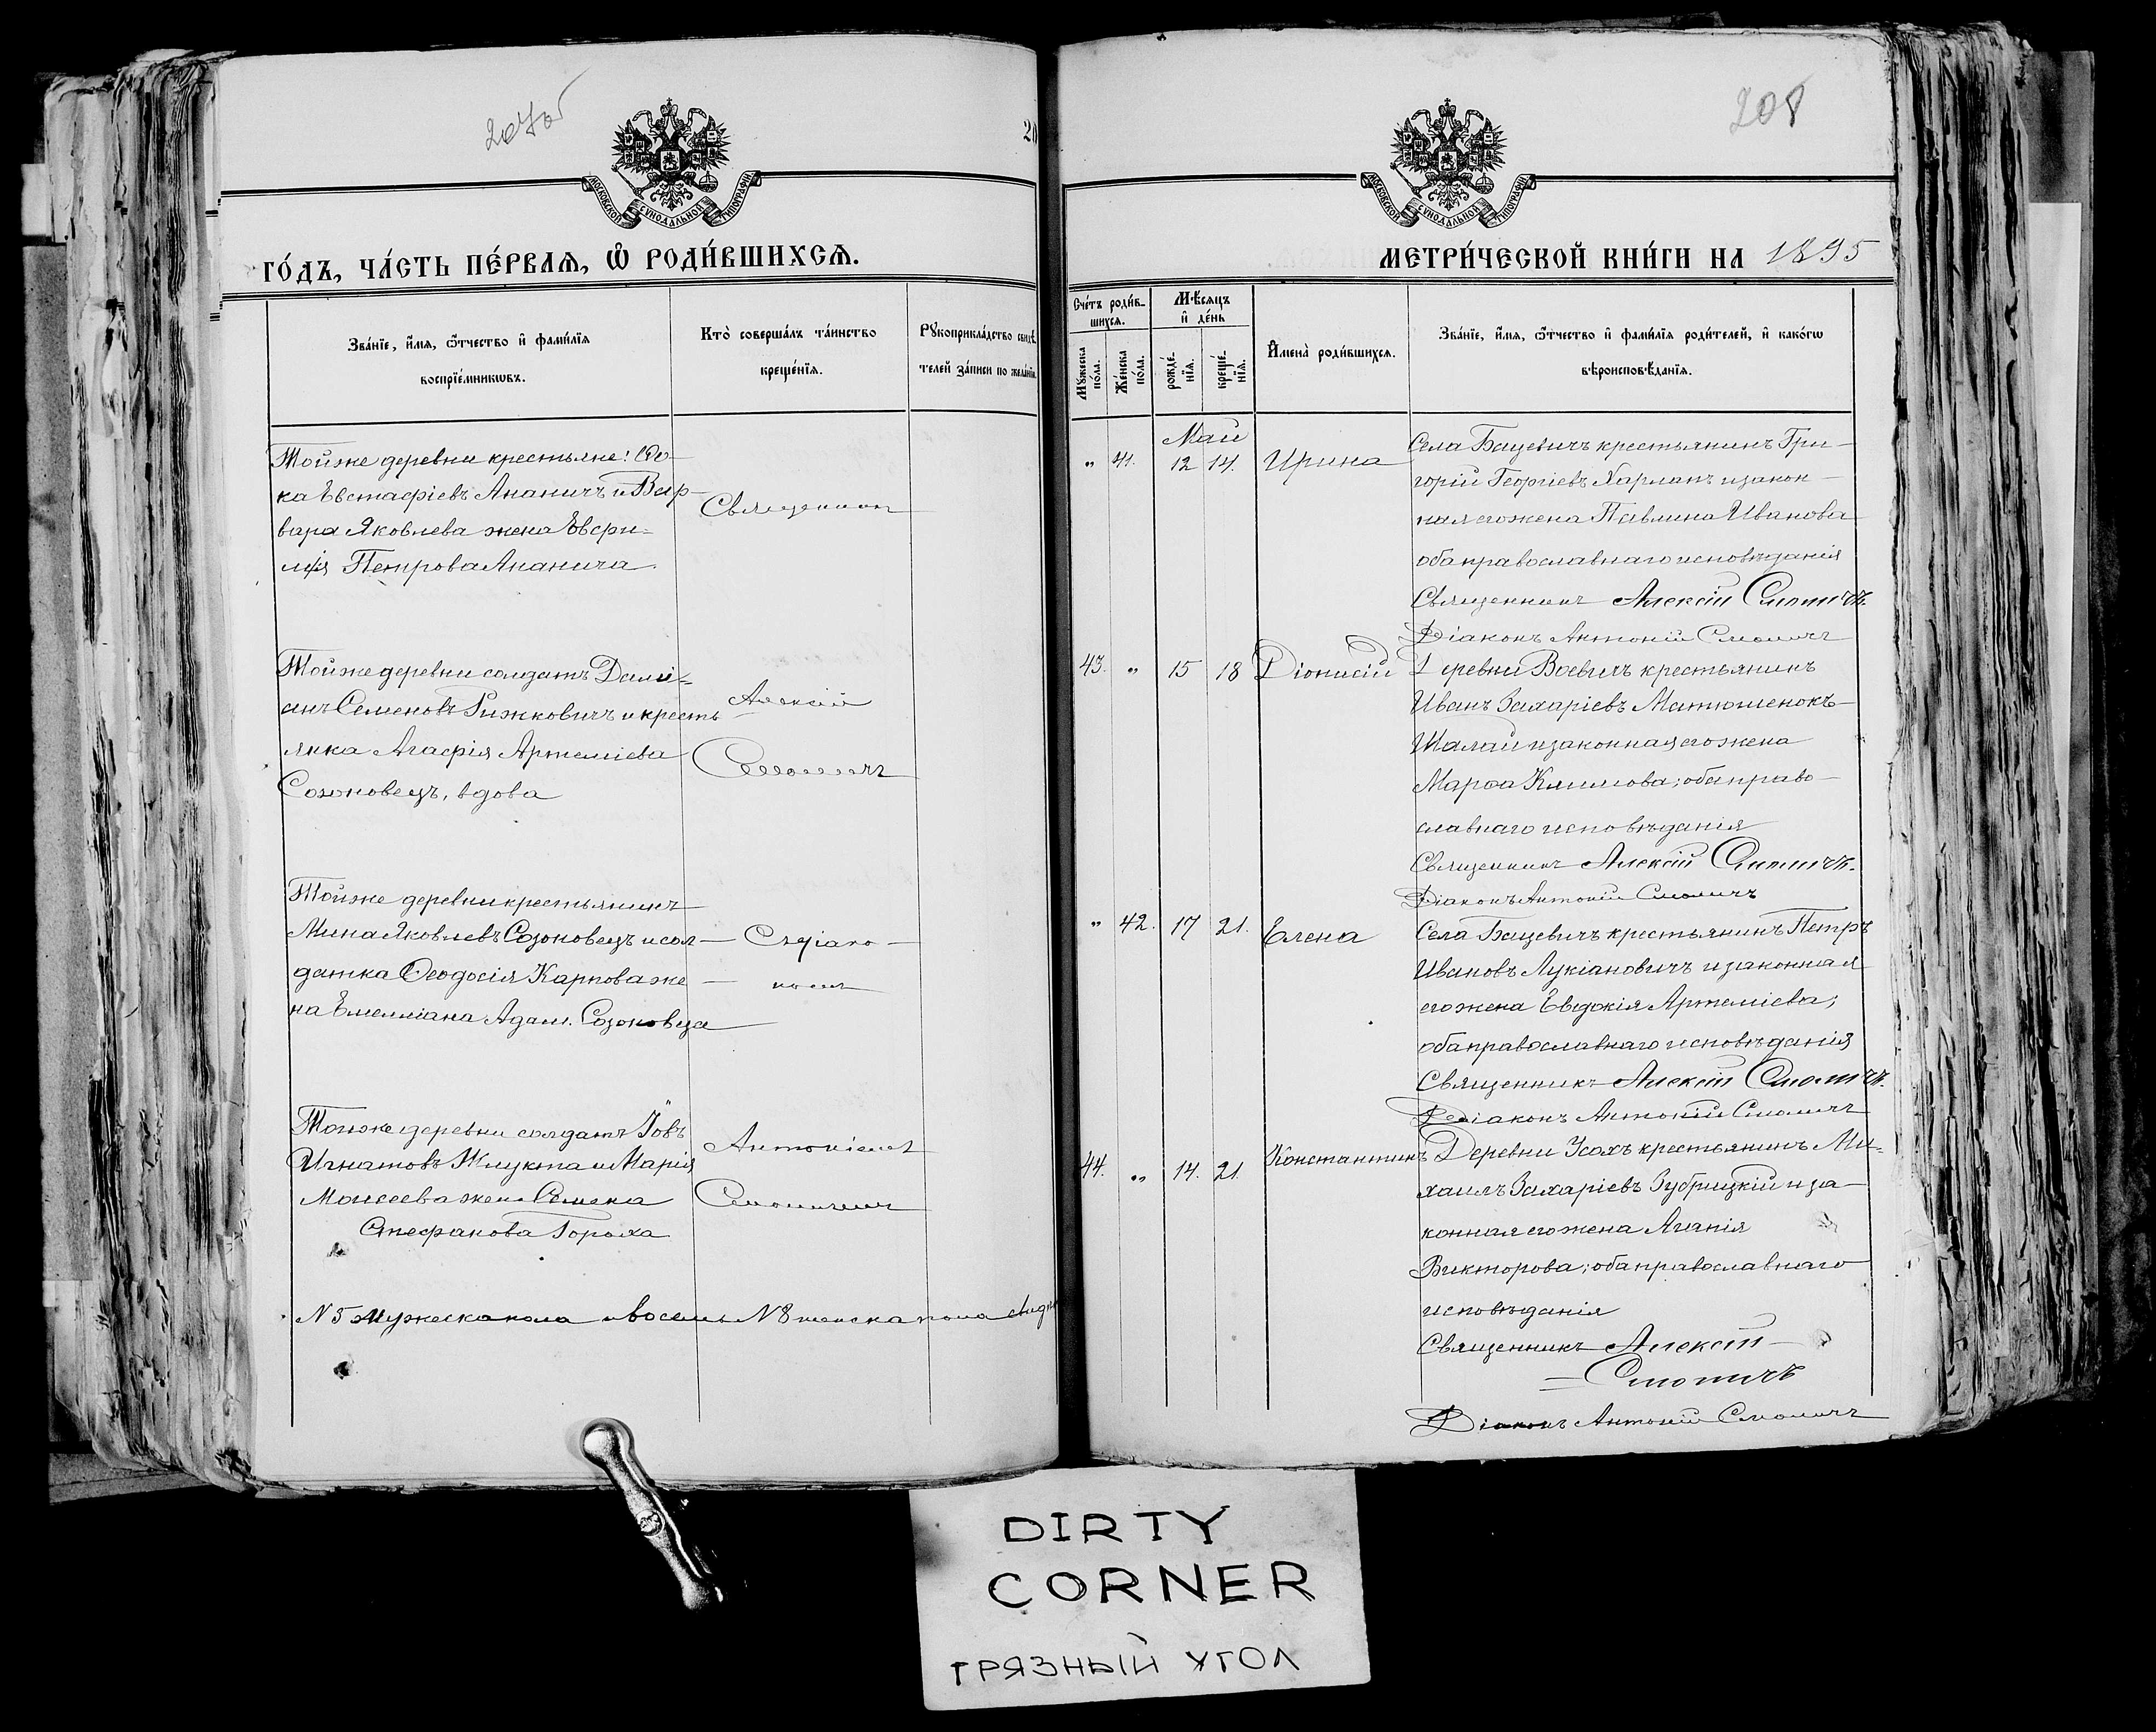 207об
МОСКОВСКОЙ СУНОДАЛЬНОЙ ТИПОГРАФІИ
ГО́ДЪ, ЧА́СТЬ ПЕ́РВАѦ, Ѡ҆ РОДИ́ВШИХСѦ.
Зва́нїе, и҆́мѧ, ѻ҆́тчество и҆ фами́лїѧ
воспрїе́мникѡвъ.
Кто̀ соверша́лъ та́инство
креще́нїѧ.
Рꙋкоприкла́дство свидѣ́
телей за́писи по жела́нїю
Тойже деревни крестьяне:
ка Евстафіевъ Ананичъ и Вар-
вара Яковлева жена Евфи-
мія Петрова Ананича.
Священник
Тойже деревни солдатъ Дамі-
анъ Семеновъ Рижковичъ и кресть
янка Агафія Артеміева
Созоновецъ, вдова
Алексій
Смоличъ
Тойже деревни крестьянинъ
Мина Яковлевъ Созоновецъ и сол-
датка Ѳеодосія Карпова же-
на Емеліана Адам. Созоновца
С діако-
номъ
Тойже деревни солдатъ Іовъ
Игнатовъ Жлукта и Марія
Моисеева жена Семена
Стефанова Гороха
Антоніемъ
Смоличемъ
N 5 мужеска пола и восемь N 8 женска пола
208
МОСКОВСКОЙ СУНОДАЛЬНОЙ ТИПОГРАФІИ
МЕТРИ́ЧЕСКОЙ КНИ́ГИ НА 1895
Сче́тъ роди́в-
шихсѧ.
Мꙋ́жеска по́ла.
Же́нска по́ла.
Мѣ́сѧцъ
и҆ де́нь
рожде́-нїѧ.
креще́-нїѧ.
И҆мена̀ роди́вшихсѧ.
Зва́нїе, и҆́мѧ, ѻ҆́тчество и҆ фами́лїѧ роди́телей, и҆ како́гѡ
вѣроисповѣ́данїѧ.
Май
" 41. 12 14. Ирина
Села Бацевичъ крестьянинъ Гри-
горій Георгіевъ Харланъ и закон-
ная его жена Павлина Иванова
оба православнаго исповѣданія
Священникъ Алексій Смоличъ.
Діаконъ Антоній Смоличъ
43. " 15 18 Діонисій
Деревни Воевичъ крестьянинъ
Иванъ Захаріевъ Матюшенокъ-
Шалай и законная его жена
Марѳа Климова; оба право-
славнаго исповѣданія
Священникъ Алексій Смоличъ.
Діаконъ Антоній Смоличъ
" 42. 17 21. Елена
Села Бацевичъ крестьянинъ Петръ
Ивановъ Лукіановичъ и законная
его жена Евдокія Артеміева;
оба православнаго исповѣданія
Священникъ Алексій Смоличъ.
Діаконъ Антоній Смоличъ
44. " 14. 21. Константинъ
Деревни Усохъ крестьянинъ Ми-
хаилъ Захаріевъ Зубрицкій и за-
конная его жена Агапія
Викторова; оба православнаго
исповѣданія
Священникъ Алексій
Смоличъ
Діаконъ Антоній Смоличъ
DIRTY
CORNER
ГРЯЗНЫЙ УГОЛ